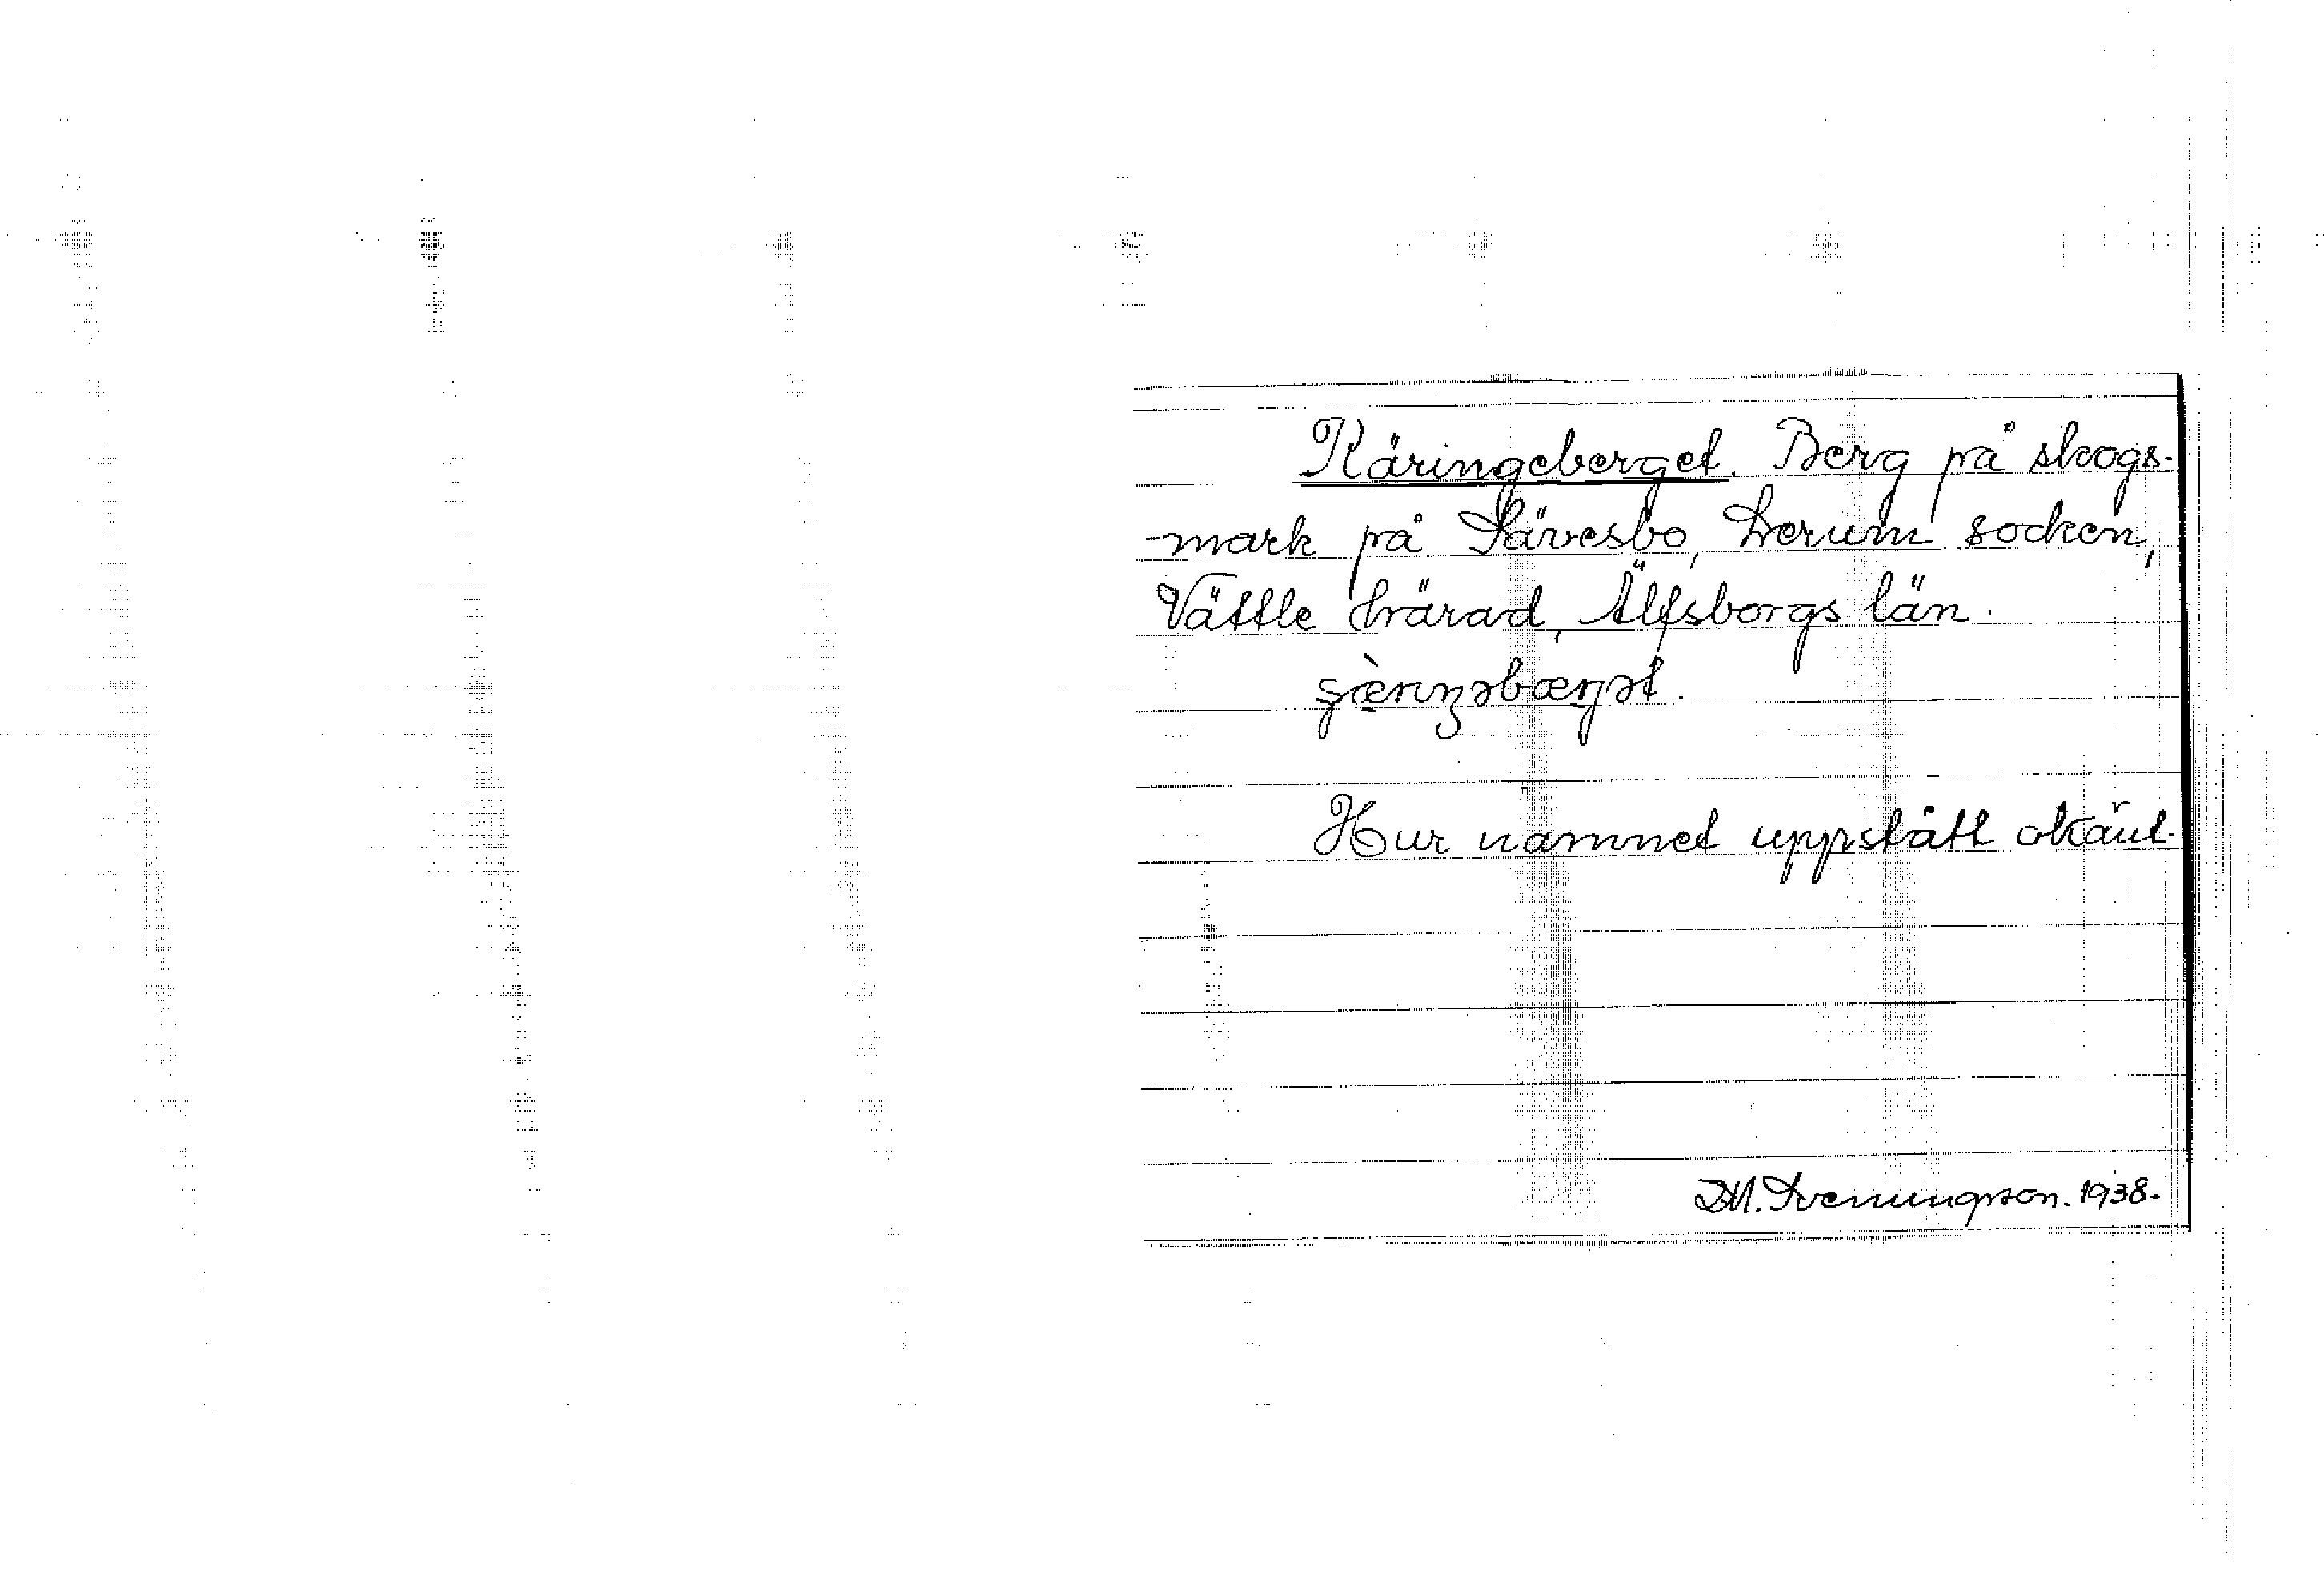 Käringeberget. Berg på skogs-
-mark på Sävesbo, Lerum socken,
Vättle härad, Älfsborgs län.
Hur namnet uppstått okänt.
D.M. Svenungsson. 1938.